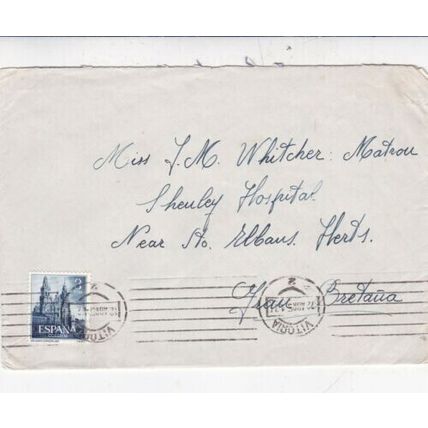 Miss J.M. Whitcher: Matron
Shenley Hospital
Near Sto. Elbans. Herts.
Gran Bretaña
2
ESPAÑA
CORREOS
VITORIA
VITORIA